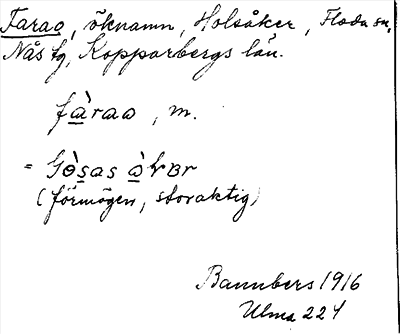 Farao, öknamn, Holsåker, Floda sn,
Nås tg, Kopparbergs län.
fàrao, m.
= Gòsas àkɐr
(förmögen, storaktig)
Bannbers 1916
Ulma 224